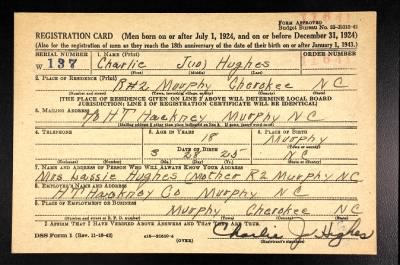 FORM APPROVED
Budget Bureau No. 33-R010-43
REGISTRATION CARD (Men born on or after July 1, 1924, and on or before December 31, 1924)
(Also for the registration of men as they reach the 18th anniversary of the date of their birth on or after January 1, 1943.)
SERIAL NUMBER 1. NAME (Print) ORDER NUMBER
W 137 Charlie Hughes
(First) (Middle) (Last)
2. PLACE OF RESIDENCE (Print)
R#2 Murphy Cherokee NC
[THE PLACE OF RESIDENCE GIVEN ON LINE 2 ABOVE WILL DETERMINE LOCAL BOARD
JURISDICTION; LINE 2 OF REGISTRATION CERTIFICATE WILL BE IDENTICAL]
3. MAILING ADDRESS
HT Hawkney Murphy NC
4. TELEPHONE 5. AGE IN YEARS 6. PLACE OF BIRTH
18 Murphy
DATE OF BIRTH
3 28 25 NC
(Exchange) (Number) (Mo.) (Day) (Yr.) (State or country)
7. NAME AND ADDRESS OF PERSON WHO WILL ALWAYS KNOW YOUR ADDRESS
Mrs Lassie Hughes (Mother R2 Murphy NC
8. EMPLOYER'S NAME AND ADDRESS
HT Hawkney Co Murphy NC
9. PLACE OF EMPLOYMENT OR BUSINESS
Murphy Cherokee NC
(Number and street or R. F. D. number) (Town) (County) (State)
I AFFIRM THAT I HAVE VERIFIED ABOVE ANSWERS AND THAT THEY ARE TRUE.
Charlie J Hughes
DSS Form 1 (Rev. 11-16-42) (OVER) (Registrant's signature)